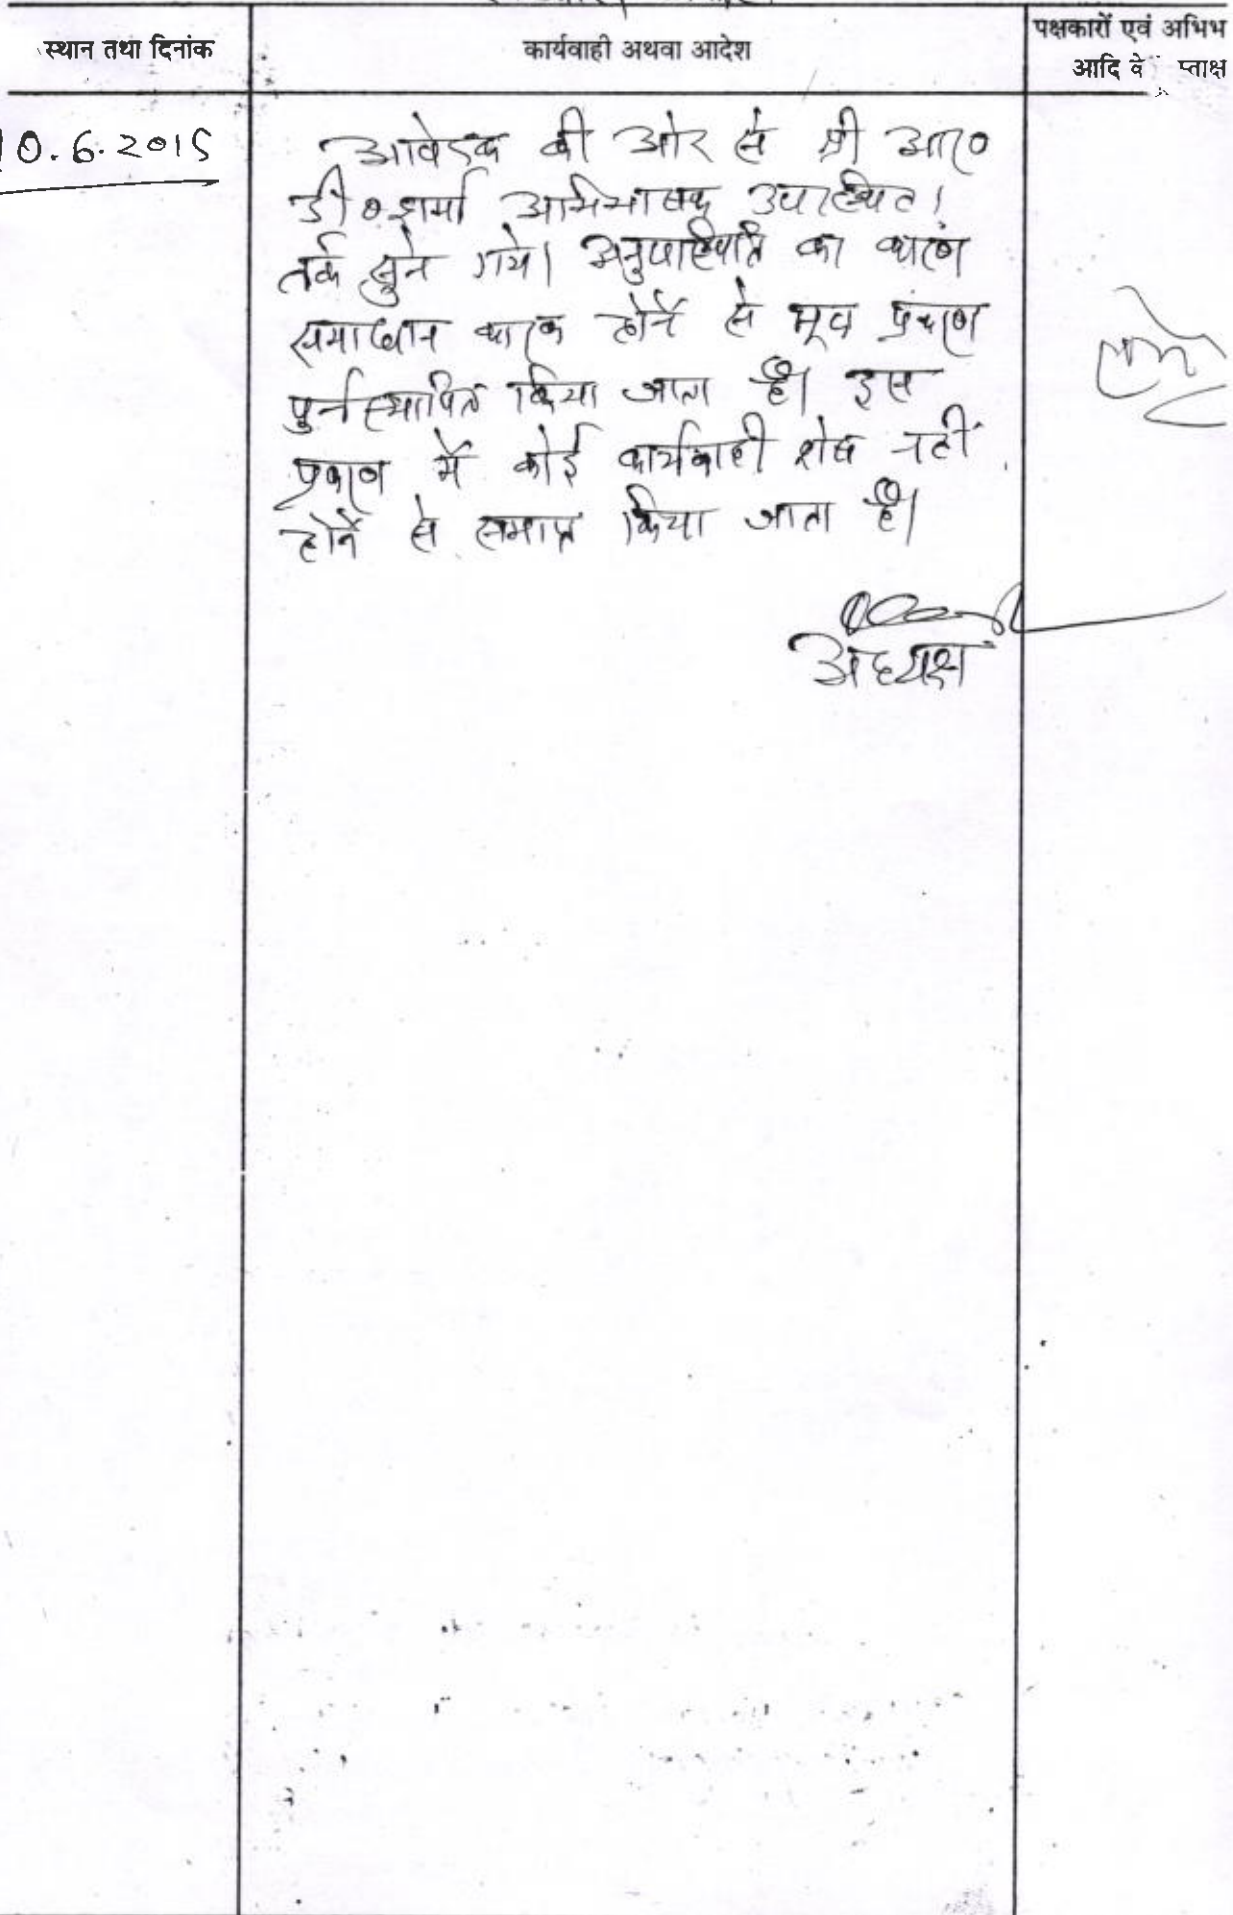 स्थान तथा दिनांक
कार्यवाही अथवा आदेश
पक्षकारों एवं अभिभ
आदि वे प्ताक्ष
10.6.2015
आवेदक की ओर से श्री आर०
डी० शर्मा अभिभाषक उपस्थित।
तर्क सुने गये। अनुपस्थिति का कारण
समाधान कारक होने से मूल प्रकरण
पुर्नस्थापित किया जाता है। इस
प्रकरण में कोई कार्यवाही शेष नहीं
होने से समाप्त किया जाता है।
अध्यक्ष